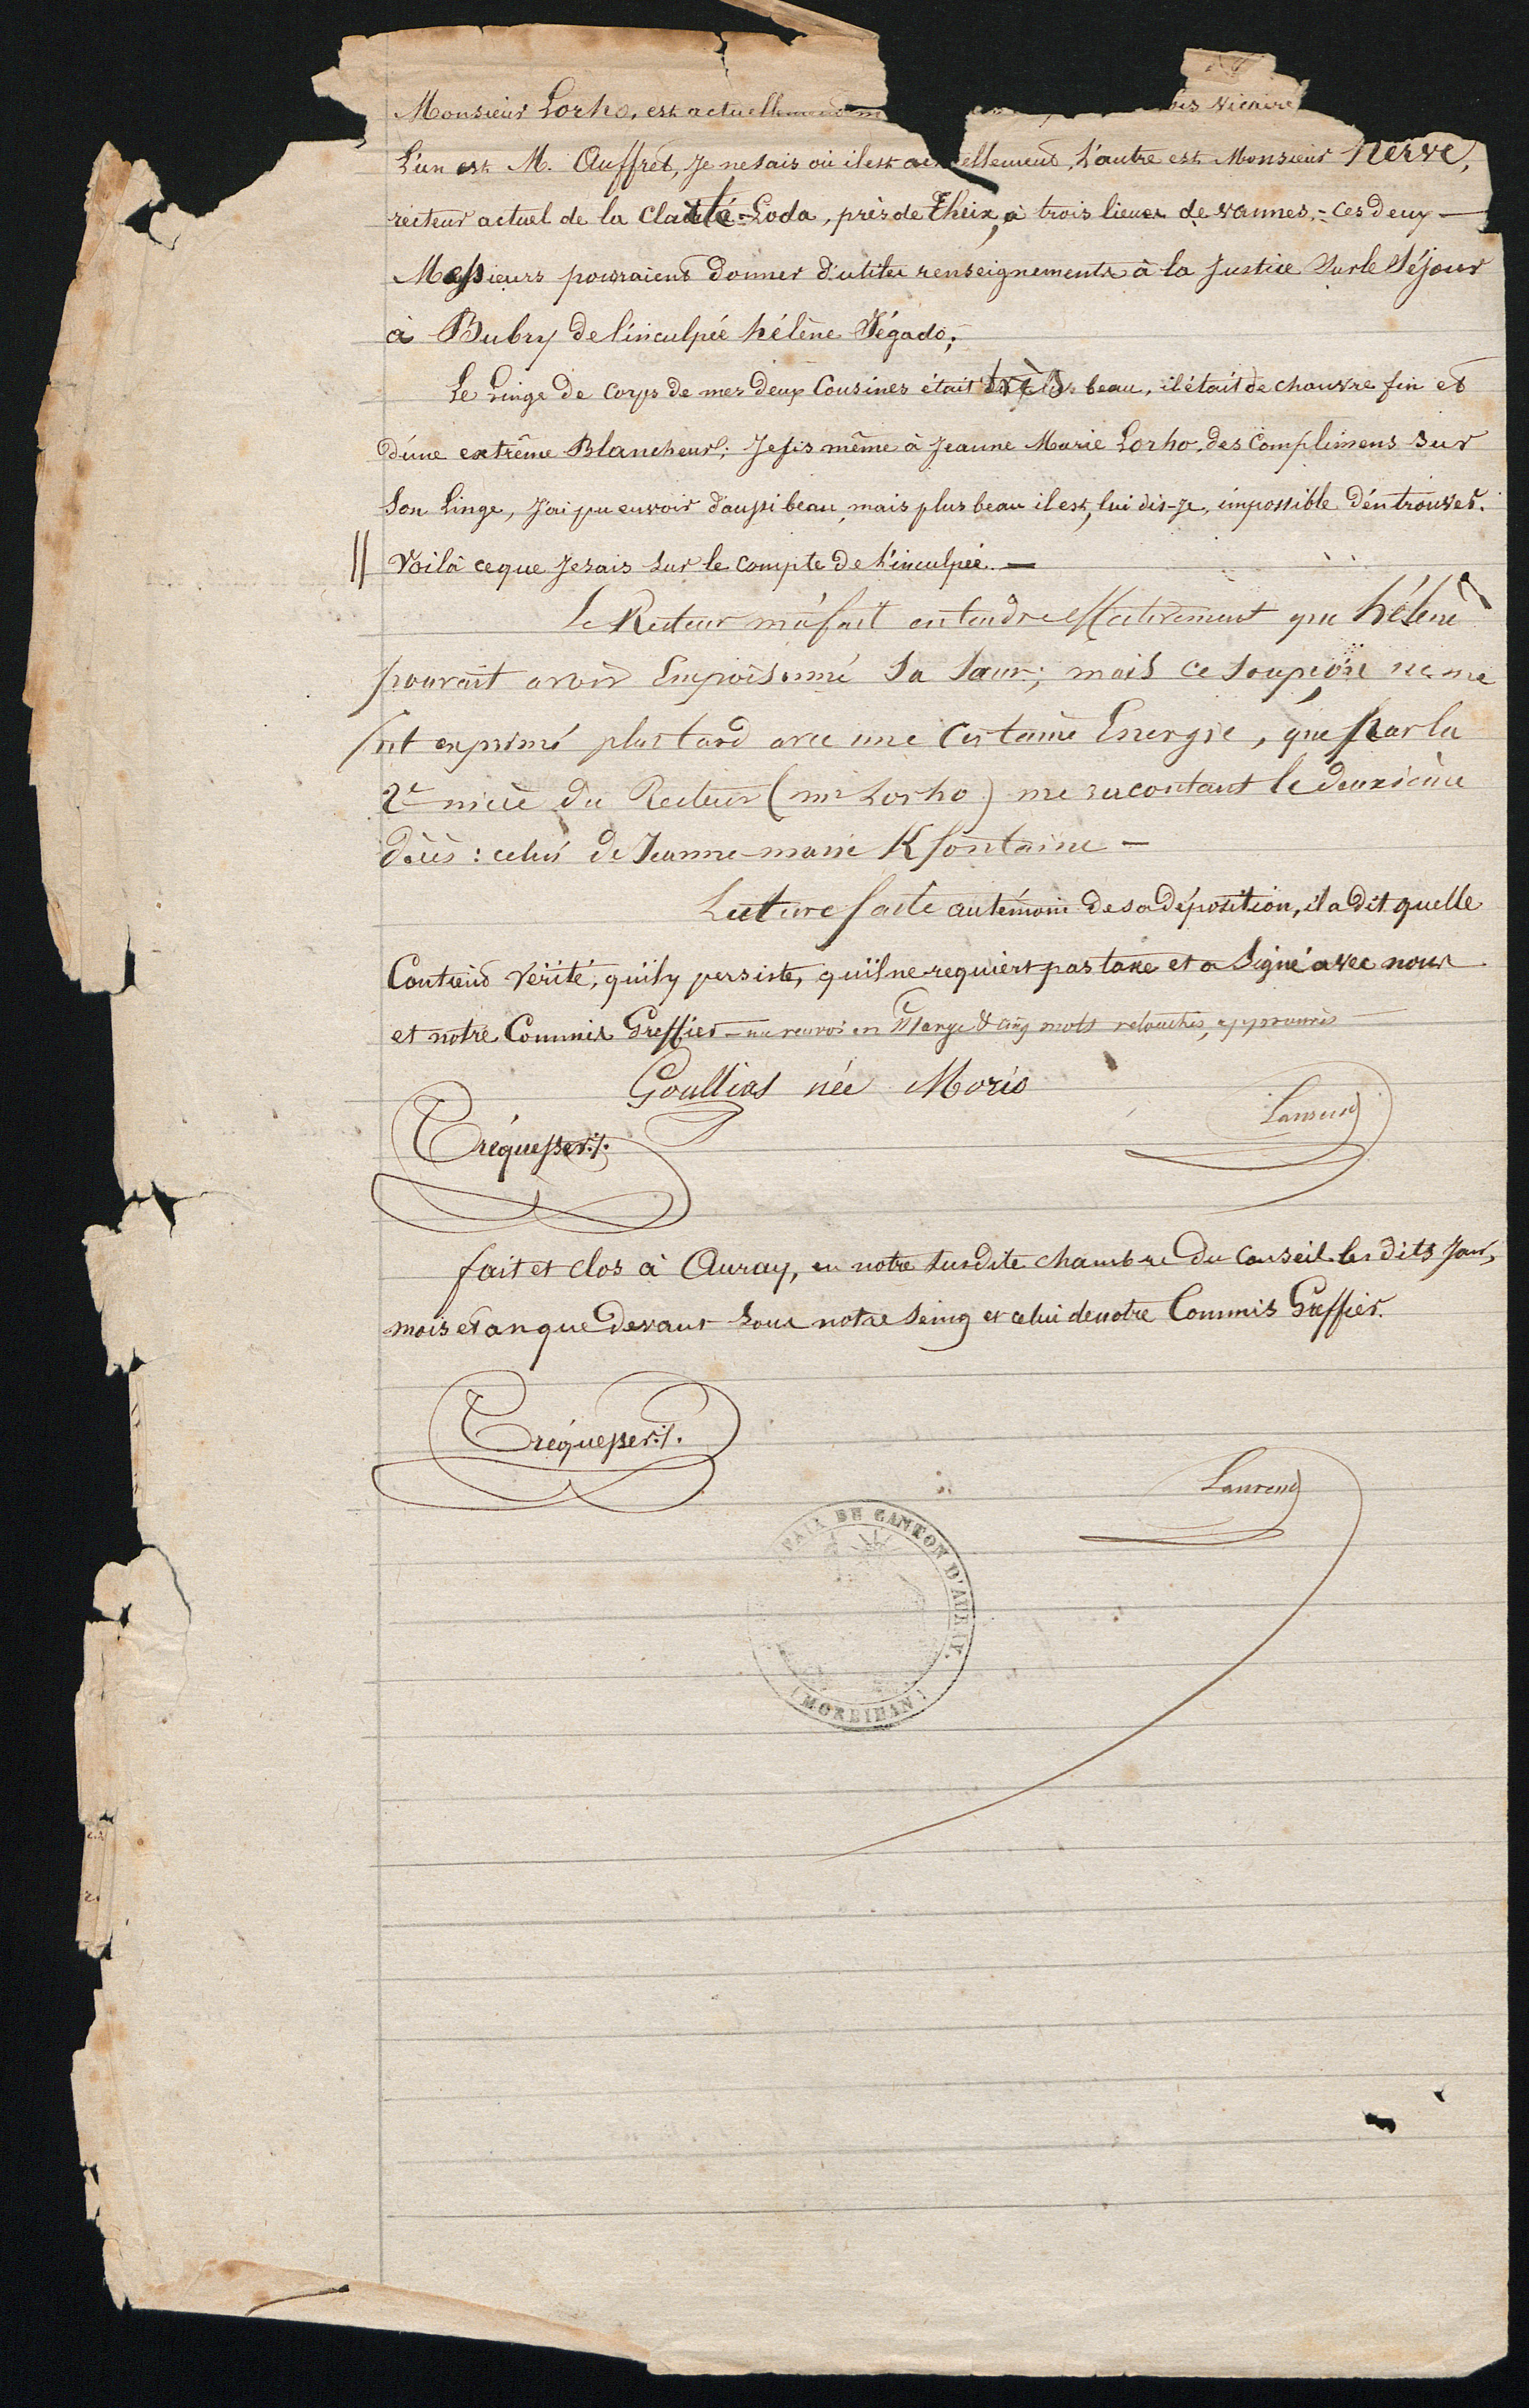 Monsieur Lorho, est actuellement vicaire
L'un est M. Auffret, Je ne sais où il est actuellement, L'autre est Monsieur Nerve,
recteur actuel de la Clarté-Loda, près de Theix, à trois lieues de vannes, - ces deux —
Messieurs pouraient donner d'utiles renseignements à la Justice Sur le Séjour
à Bubry de l'inculpée hélène Jégado; -
Le Linge de Corps de mes deux Cousines était très beau, il était de chanvre fin et
d'une extrême Blancheur; Je fis même à Jeanne Marie Lorho, des Complimens Sur
Son Linge, J'ai pu en voir d'aussi beau, mais plus beau il est, lui dis-Je, impossible d'en trouver.
// Voilà ce que Je sais sur le compte de l'inculpée. —
Le Recteur m'a fait entendre effectivement que hélène
pouvait avoir Empoisonné Sa Sœur; mais ce soupçon ne me
fut exprimé plus tard avec une Certaine Energie, que par la
2e nièce du Recteur (mr Lorho) me racontant le deuxième
décès : celui de Jeanne-marie Kfontaine —
Lecture faite au témoin de sa déposition, il a dit quelle
Contient Vérité, qu'il y persiste, qu'il ne requiert pas taxe et a Signé avec nous
et notre Commis Greffier — un renvoi en Marge & cinq mots retouchés, approuvés —
Goullias née Morio
Tréquesser./.
Laurent
fait et clos à Auray, en notre Susdite chambre du Conseil les dits Jour,
mois et an que Devant Sous notre Seing et celui de notre Commis Greffier.
Tréquesser./.
Laurent
PAIX DU CANTON D'AURAY.
(MORBIHAN)